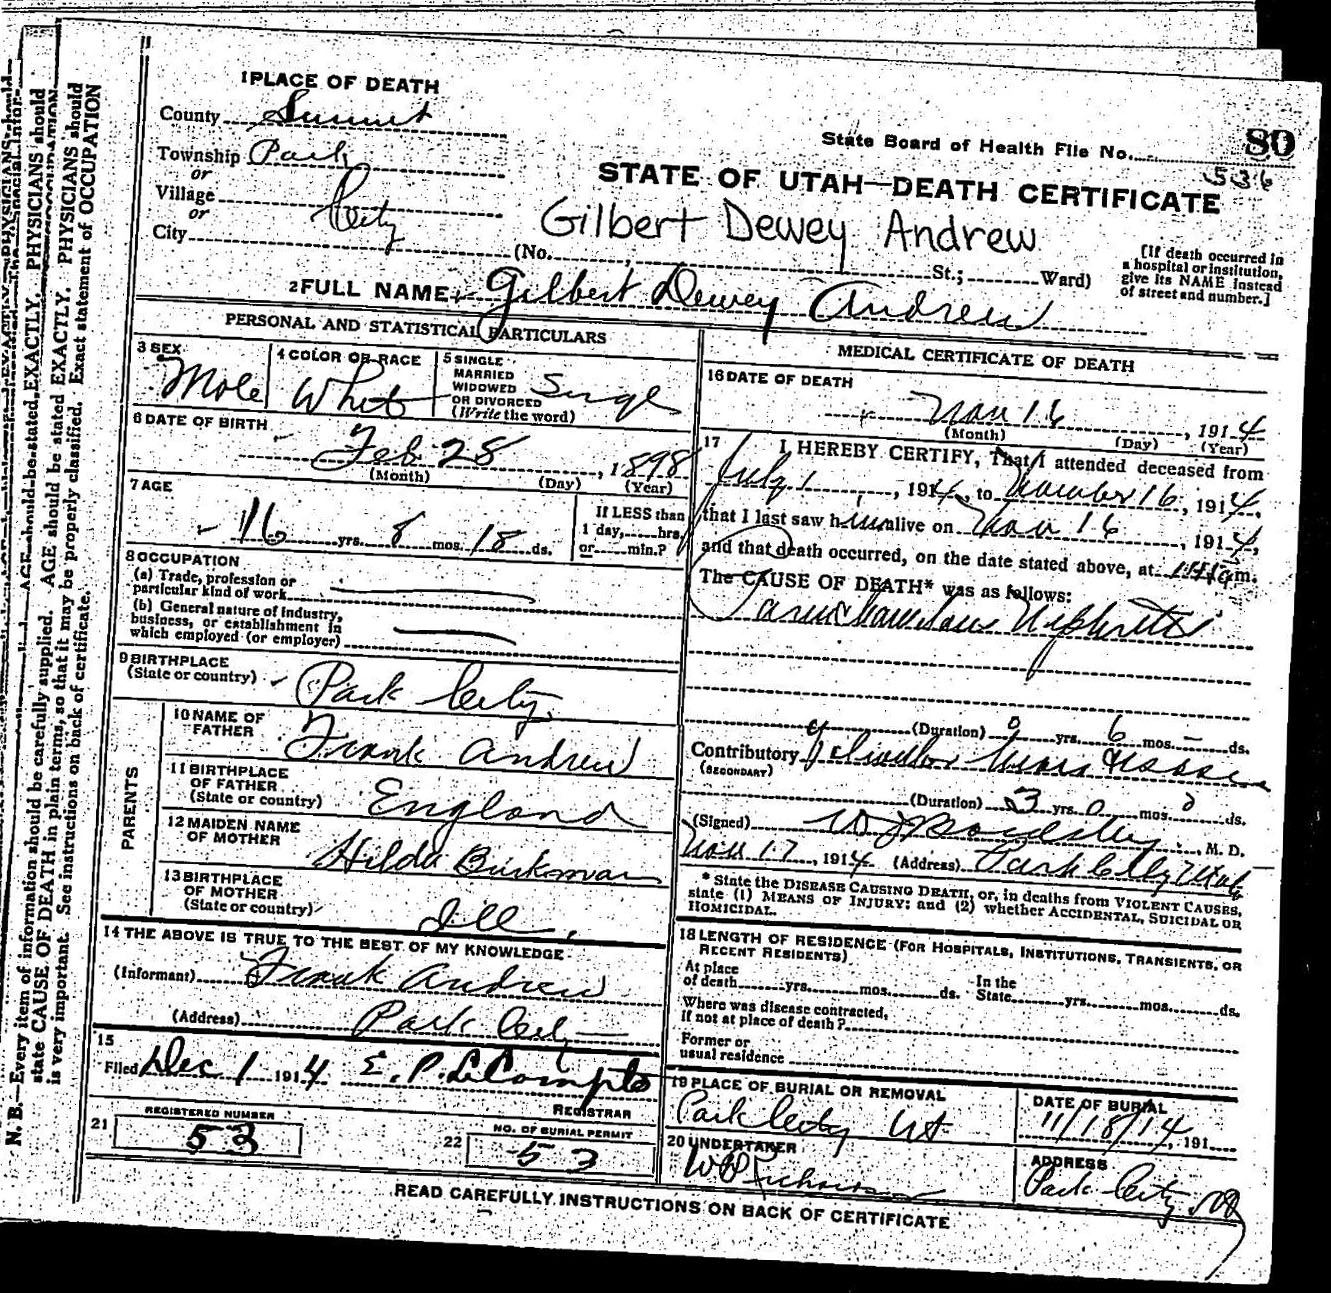 N. B.—Every item of information should be carefully supplied. AGE should be stated EXACTLY. PHYSICIANS should
state CAUSE OF DEATH in plain terms, so that it may be properly classified. Exact statement of OCCUPATION
is very important. See instructions on back of certificate.
1 PLACE OF DEATH
County Summit
Township Park
or
Village City
or
City
State Board of Health File No. 80
536
STATE OF UTAH—DEATH CERTIFICATE
Gilbert Dewey Andrew
(No. St.; Ward)
[If death occurred in
a hospital or institution,
give its NAME instead
of street and number.]
2 FULL NAME Gilbert Dewey Andrew
PERSONAL AND STATISTICAL PARTICULARS
3 SEX Male
4 COLOR OR RACE White
5 SINGLE
MARRIED
WIDOWED
OR DIVORCED
(Write the word) Single
6 DATE OF BIRTH
Feb 28, 1898
(Month) (Day) (Year)
7 AGE
16 yrs. 8 mos. 18 ds.
If LESS than
1 day, hrs.
or min.?
8 OCCUPATION
(a) Trade, profession or
particular kind of work
(b) General nature of industry,
business, or establishment in
which employed (or employer)
9 BIRTHPLACE
(State or country) Park City
PARENTS
10 NAME OF
FATHER Frank Andrew
11 BIRTHPLACE
OF FATHER
(State or country) England
12 MAIDEN NAME
OF MOTHER Hilda
13 BIRTHPLACE
OF MOTHER
(State or country) Ill.
14 THE ABOVE IS TRUE TO THE BEST OF MY KNOWLEDGE
(Informant) Frank Andrew
(Address) Park City
15
Filed Dec 1 1914 E. P. LeCompte
REGISTRAR
21 REGISTERED NUMBER
53
22 NO. OF BURIAL PERMIT
53
MEDICAL CERTIFICATE OF DEATH
16 DATE OF DEATH
Nov 16, 1914
(Month) (Day) (Year)
17 I HEREBY CERTIFY, That I attended deceased from
July 1, 1914, to November 16, 1914,
that I last saw him alive on Nov 16, 1914,
and that death occurred, on the date stated above, at m.
The CAUSE OF DEATH* was as follows:
Parenchymatous Nephritis
(Duration) 0 yrs. 6 mos. — ds.
Contributory
(SECONDARY)
(Duration) 3 yrs. 0 mos. 0 ds.
(Signed) M. D.
Nov 17, 1914 (Address) Park City Utah
* State the DISEASE CAUSING DEATH, or, in deaths from VIOLENT CAUSES,
state (1) MEANS OF INJURY; and (2) whether ACCIDENTAL, SUICIDAL OR
HOMICIDAL.
18 LENGTH OF RESIDENCE (FOR HOSPITALS, INSTITUTIONS, TRANSIENTS, OR
RECENT RESIDENTS)
At place
of death yrs. mos. ds. In the
State yrs. mos. ds.
Where was disease contracted,
if not at place of death?
Former or
usual residence
19 PLACE OF BURIAL OR REMOVAL
Park City Ut
DATE OF BURIAL
11/18/14, 191
20 UNDERTAKER
ADDRESS
Park City
READ CAREFULLY INSTRUCTIONS ON BACK OF CERTIFICATE